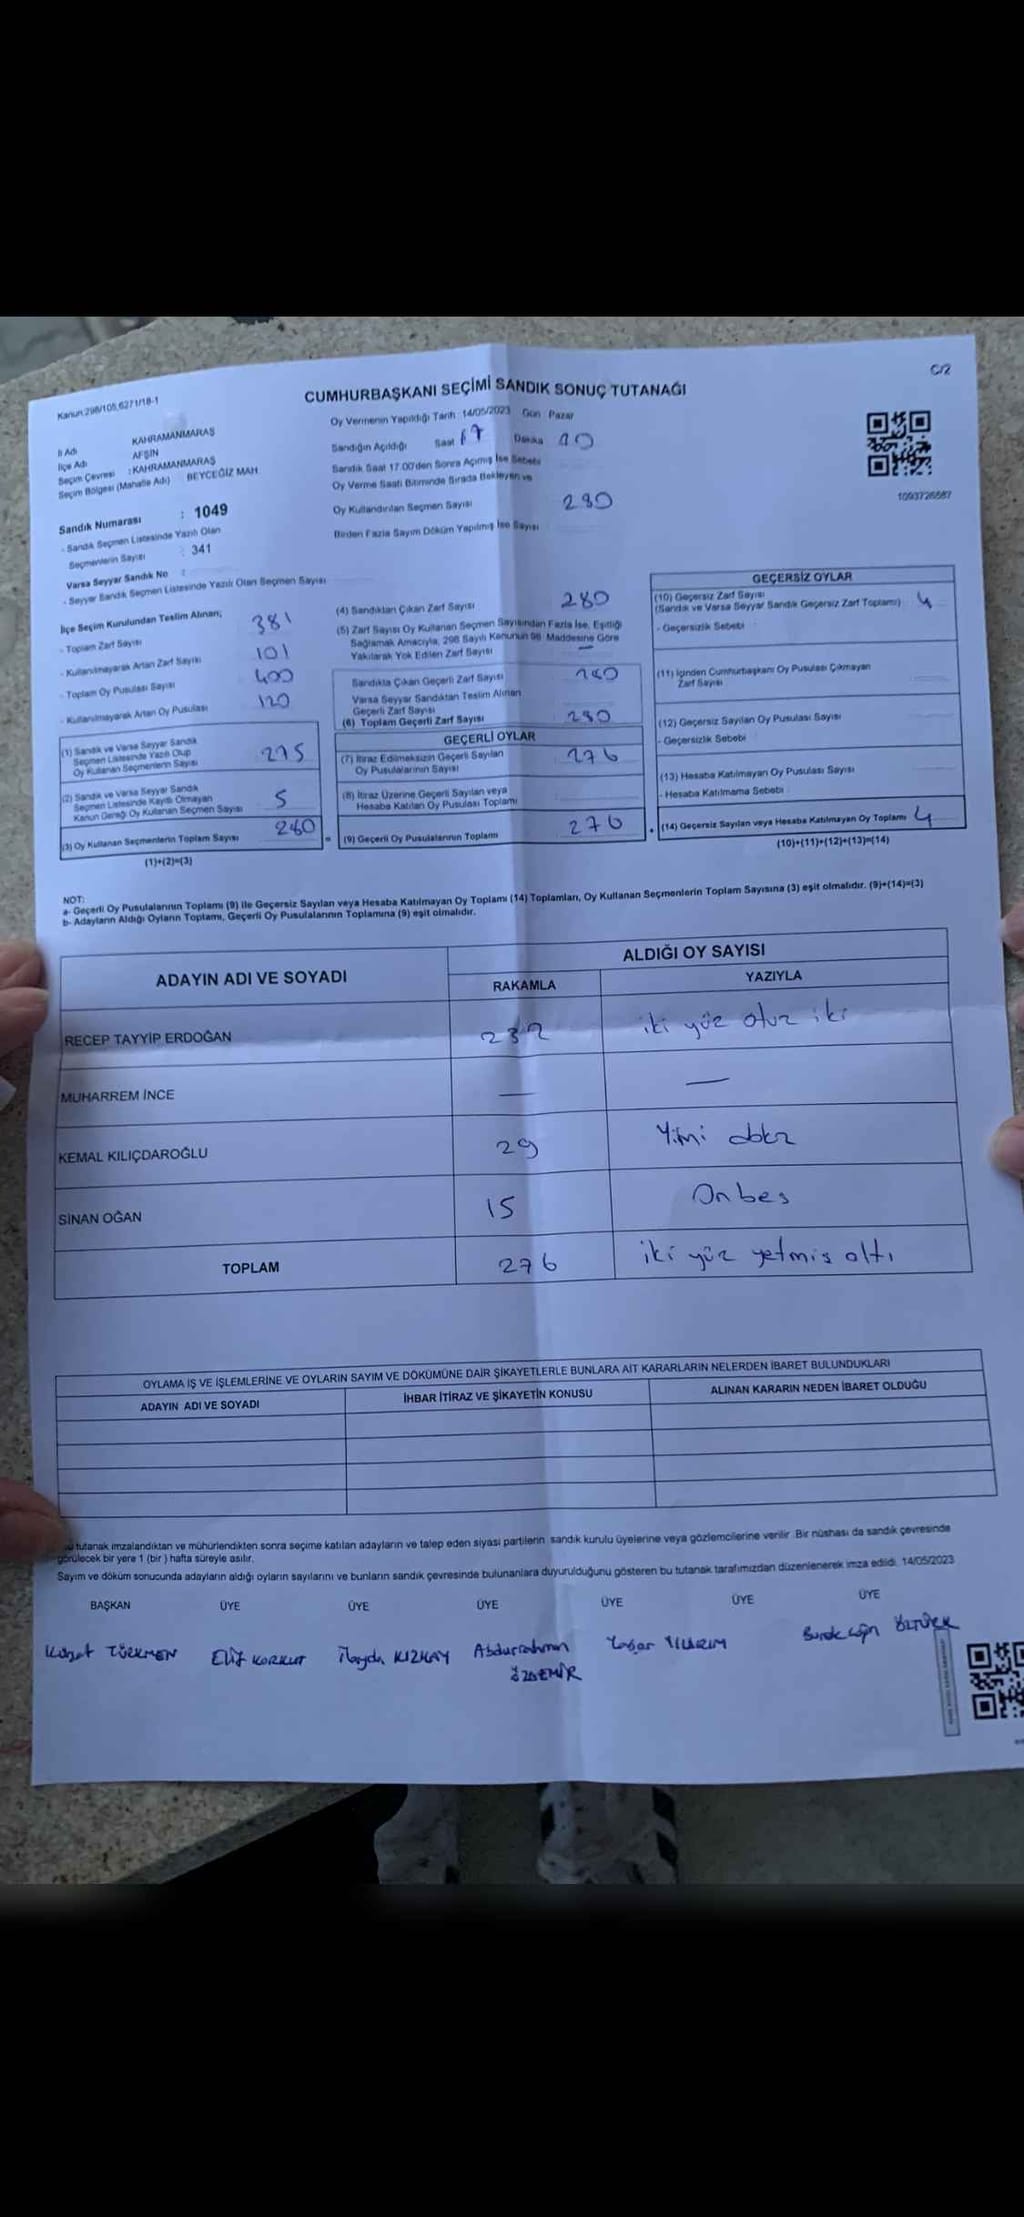 C/2
Kanun:298/105,6271/18-1
CUMHURBAŞKANI SEÇİMİ SANDIK SONUÇ TUTANAĞI
İl Adı KAHRAMANMARAŞ
İlçe Adı AFŞİN
Seçim Çevresi : KAHRAMANMARAŞ
Seçim Bölgesi (Mahalle Adı) BEYCEĞİZ MAH.
Sandık Numarası : 1049
- Sandık Seçmen Listesinde Yazılı Olan
Seçmenlerin Sayısı : 341
Varsa Seyyar Sandık No :
- Seyyar Sandık Seçmen Listesinde Yazılı Olan Seçmen Sayısı
Oy Vermenin Yapıldığı Tarih 14/05/2023 Gün Pazar
Sandığın Açıldığı Saat 17 Dakika 10
Sandık Saat 17.00'den Sonra Açılmış İse Sebebi
Oy Verme Saati Bitiminde Sırada Bekleyen ve
Oy Kullandırılan Seçmen Sayısı 280
Birden Fazla Sayım Döküm Yapılmış İse Sayısı
1093726687
İlçe Seçim Kurulundan Teslim Alınan;
- Toplam Zarf Sayısı 381
- Kullanılmayarak Artan Zarf Sayısı 101
- Toplam Oy Pusulası Sayısı 400
- Kullanılmayarak Artan Oy Pusulası 120
(1) Sandık ve Varsa Seyyar Sandık
Seçmen Listesinde Yazılı Olup
Oy Kullanan Seçmenlerin Sayısı 275
(2) Sandık ve Varsa Seyyar Sandık
Seçmen Listesinde Kayıtlı Olmayan
Kanun Gereği Oy Kullanan Seçmen Sayısı 5
(3) Oy Kullanan Seçmenlerin Toplam Sayısı 280
(1)+(2)=(3)
(4) Sandıktan Çıkan Zarf Sayısı 280
(5) Zarf Sayısı Oy Kullanan Seçmen Sayısından Fazla İse, Eşitliği
Sağlamak Amacıyla, 298 Sayılı Kanunun 98. Maddesine Göre
Yakılarak Yok Edilen Zarf Sayısı —
Sandıkta Çıkan Geçerli Zarf Sayısı 280
Varsa Seyyar Sandıktan Teslim Alınan
Geçerli Zarf Sayısı
(6) Toplam Geçerli Zarf Sayısı 280
GEÇERLİ OYLAR
(7) İtiraz Edilmeksizin Geçerli Sayılan
Oy Pusulalarının Sayısı 276
(8) İtiraz Üzerine Geçerli Sayılan veya
Hesaba Katılan Oy Pusulası Toplamı
= (9) Geçerli Oy Pusulalarının Toplamı 276
GEÇERSİZ OYLAR
(10) Geçersiz Zarf Sayısı
(Sandık ve Varsa Seyyar Sandık Geçersiz Zarf Toplamı) 4
- Geçersizlik Sebebi
(11) İçinden Cumhurbaşkanı Oy Pusulası Çıkmayan
Zarf Sayısı
(12) Geçersiz Sayılan Oy Pusulası Sayısı
- Geçersizlik Sebebi
(13) Hesaba Katılmayan Oy Pusulası Sayısı
- Hesaba Katılmama Sebebi
+ (14) Geçersiz Sayılan veya Hesaba Katılmayan Oy Toplamı 4
(10)+(11)+(12)+(13)=(14)
NOT:
a- Geçerli Oy Pusulalarının Toplamı (9) ile Geçersiz Sayılan veya Hesaba Katılmayan Oy Toplamı (14) Toplamları, Oy Kullanan Seçmenlerin Toplam Sayısına (3) eşit olmalıdır. (9)+(14)=(3)
b- Adayların Aldığı Oyların Toplamı, Geçerli Oy Pusulalarının Toplamına (9) eşit olmalıdır.
ADAYIN ADI VE SOYADI
ALDIĞI OY SAYISI
RAKAMLA YAZIYLA
RECEP TAYYİP ERDOĞAN 232 iki yüz otuz iki
MUHARREM İNCE — —
KEMAL KILIÇDAROĞLU 29 Yimi dokz
SİNAN OĞAN 15 Onbes
TOPLAM 276 iki yüz yetmis altı
OYLAMA İŞ VE İŞLEMLERİNE VE OYLARIN SAYIM VE DÖKÜMÜNE DAİR ŞİKAYETLERLE BUNLARA AİT KARARLARIN NELERDEN İBARET BULUNDUKLARI
ADAYIN ADI VE SOYADI İHBAR İTİRAZ VE ŞİKAYETİN KONUSU ALINAN KARARIN NEDEN İBARET OLDUĞU
tutanak imzalandıktan ve mühürlendikten sonra seçime katılan adayların ve talep eden siyasi partilerin sandık kurulu üyelerine veya gözlemcilerine verilir. Bir nüshası da sandık çevresinde
görülecek bir yere 1 (bir ) hafta süreyle asılır.
Sayım ve döküm sonucunda adayların aldığı oyların sayılarını ve bunların sandık çevresinde bulunanlara duyurulduğunu gösteren bu tutanak tarafımızdan düzenlenerek imza edildi. 14/05/2023
BAŞKAN ÜYE ÜYE ÜYE ÜYE ÜYE ÜYE
TÜRKMEN Elif KORKUT İlayda KIZKAY Abdurrahman Yaşar YILDIRIM ÖZTÜRK
ÖZDEMİR